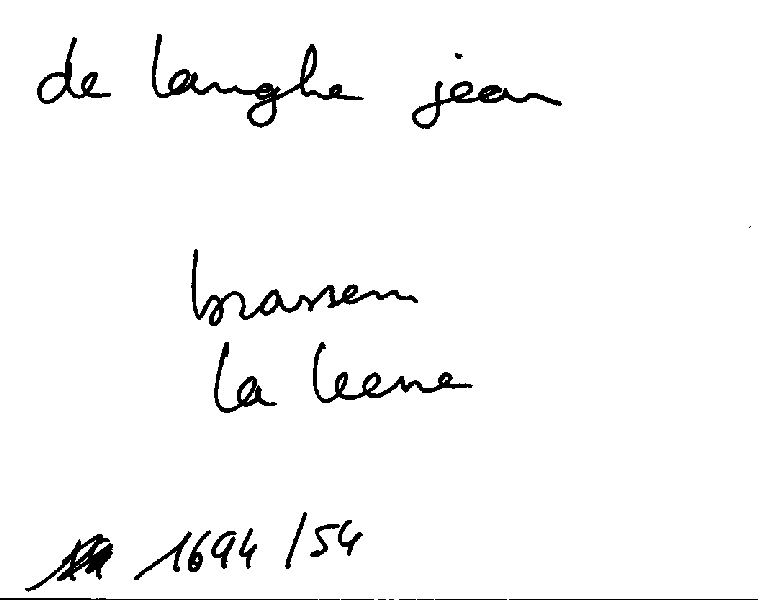 de langhe jean
brasserie
la leene
1694 / 54